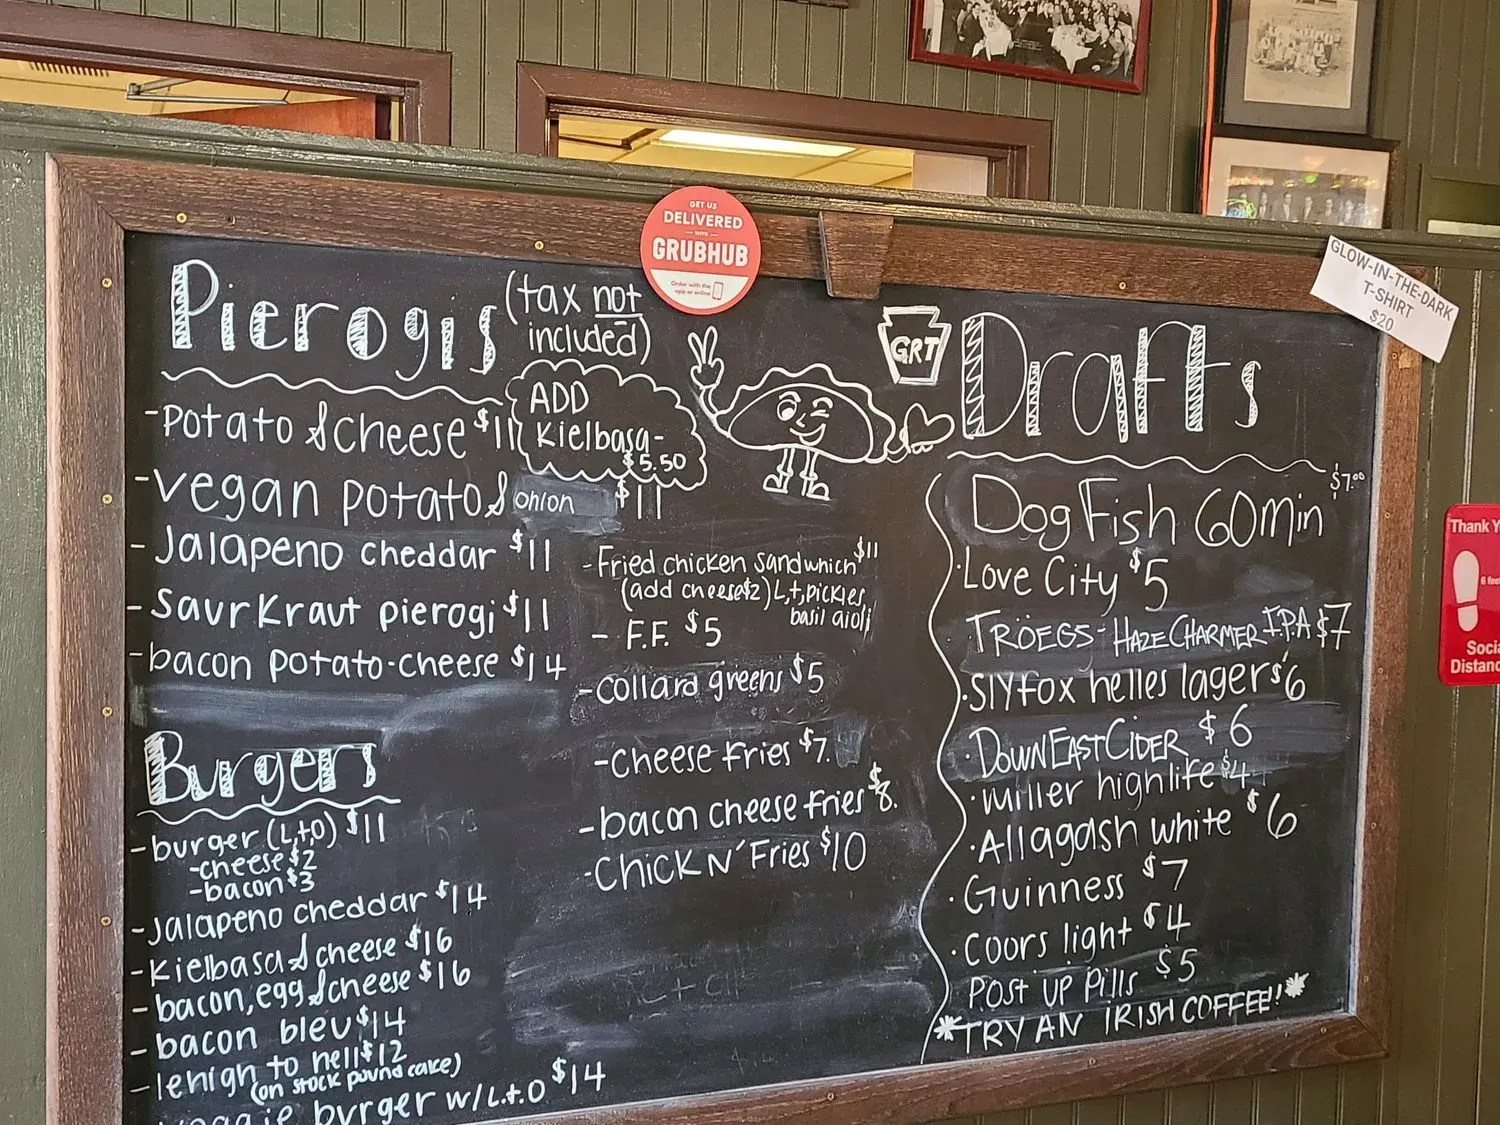 GET US
DELIVERED
WITH
GRUBHUB
Order with the
app or online
GLOW-IN-THE-DARK
T-SHIRT
$20
Pierogis (tax not
included)
- Potato & cheese $11
ADD
Kielbasa-
$5.50
- vegan potato & onion $11
- Jalapeno cheddar $11
- Saurkraut pierogi $11
- bacon potato-cheese $14
Burgers
- burger (L,t,O) $11
- cheese $2
- bacon $3
- Jalapeno cheddar $14
- Kielbasa & cheese $16
- bacon, egg & cheese $16
- bacon bleu $14
- lehigh to hell $12
(on stock pound cake)
veggie burger w/L.t.O $14
- Fried chicken sandwhich $11
(add cheese $2) L,t,pickles,
basil aioli
- F.F. $5
- collard greens $5
- cheese fries $7.
- bacon cheese fries $8.
- Chick N' Fries $10
GRT
Drafts
DogFish 60min $7.00
· Love City $5
TRÖEGS - HAZE CHARMER I.P.A $7
· Slyfox helles lager $6
· DOWNEAST CIDER $6
· miller highlife $4
· Allagash white $6
· Guinness $7
· Coors light $4
POST UP Pills $5
*TRY AN IRISH COFFEE!!*
Thank Y
6 feet
Socia
Distanc